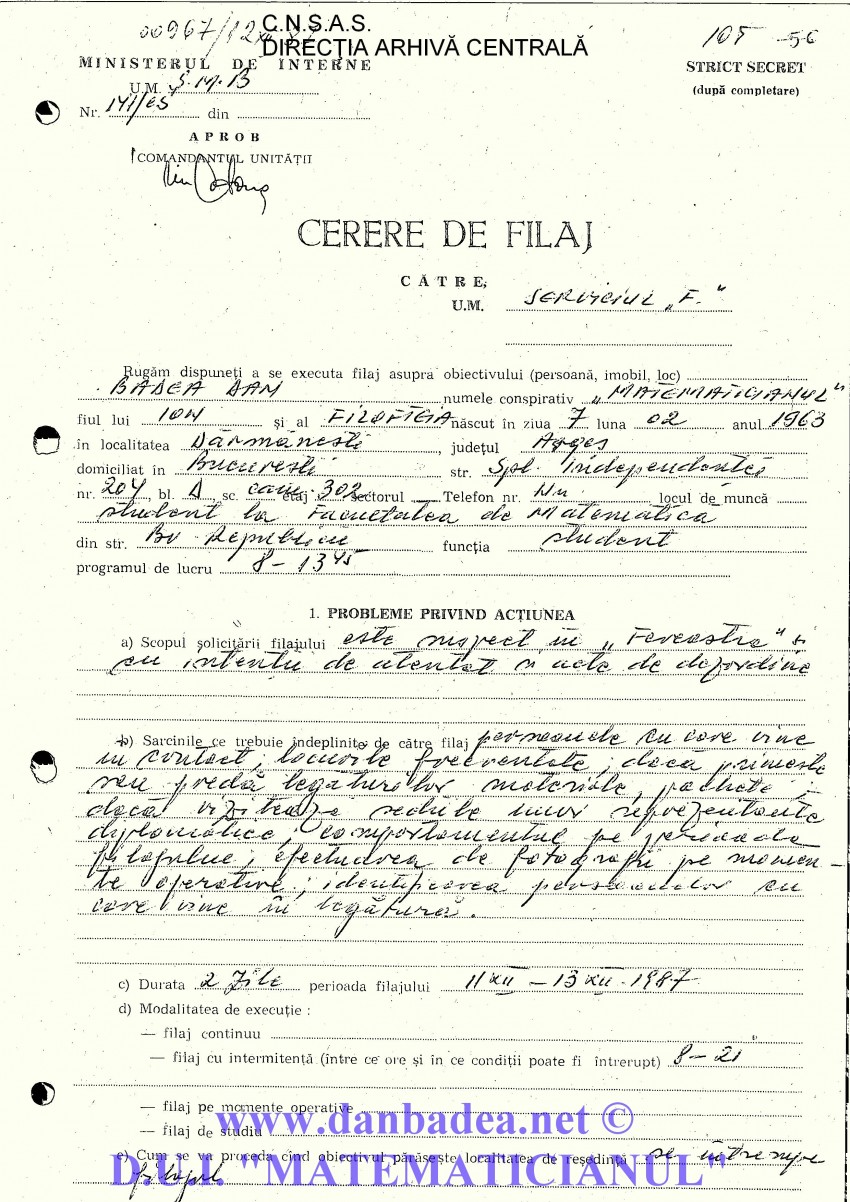 00967/12
C.N.S.A.S.
DIRECȚIA ARHIVĂ CENTRALĂ
105 56
MINISTERUL DE INTERNE
STRICT SECRET
U.M. S.M.B
(după completare)
Nr. 141/ES din
APROB
COMANDANTUL UNITĂȚII
CERERE DE FILAJ
CĂTRE,
U.M. SERVICIUL „F."
Rugăm dispuneți a se executa filaj asupra obiectivului (persoană, imobil, loc)
BADEA DAN numele conspirativ „MATEMATICIANUL"
fiul lui ION și al FILOFTEIA născut în ziua 7 luna 02 anul 1963
în localitatea Dărmănești, județul Argeș
domiciliat în București str. Spl. Independenței
nr. 204, bl. A, sc. cam. etaj 302 sectorul Telefon nr. Nu locul de muncă
student la Facultatea de Matematică
din str. Bv Republicii funcția student
programul de lucru 8 - 13 45
1. PROBLEME PRIVIND ACȚIUNEA
a) Scopul solicitării filajului este suspect în „Fereastra" și
cu intenții de atentat și acte de dezordine
b) Sarcinile ce trebuie îndeplinite de către filaj persoanele cu care vine
în contact; locurile frecventate; dacă primește
sau predă legăturilor materiale, pachete;
dacă vizitează sediile unor reprezentanțe
diplomatice; comportamentul pe perioada
filajului; efectuarea de fotografii pe momen-
te operative; identificarea persoanelor cu
care vine în legătură.
c) Durata 2 zile perioada filajului 11 XII - 13 XII - 1987
d) Modalitatea de execuție :
— filaj continuu
— filaj cu intermitență (între ce ore și în ce condiții poate fi întrerupt) 8 - 21
— filaj pe momente operative
www.danbadea.net ©
— filaj de studiu
e) Cum se va proceda cînd obiectivul părăsește localitatea de reședință se întrerupe
D.U.I. "MATEMATICIANUL"
filajul